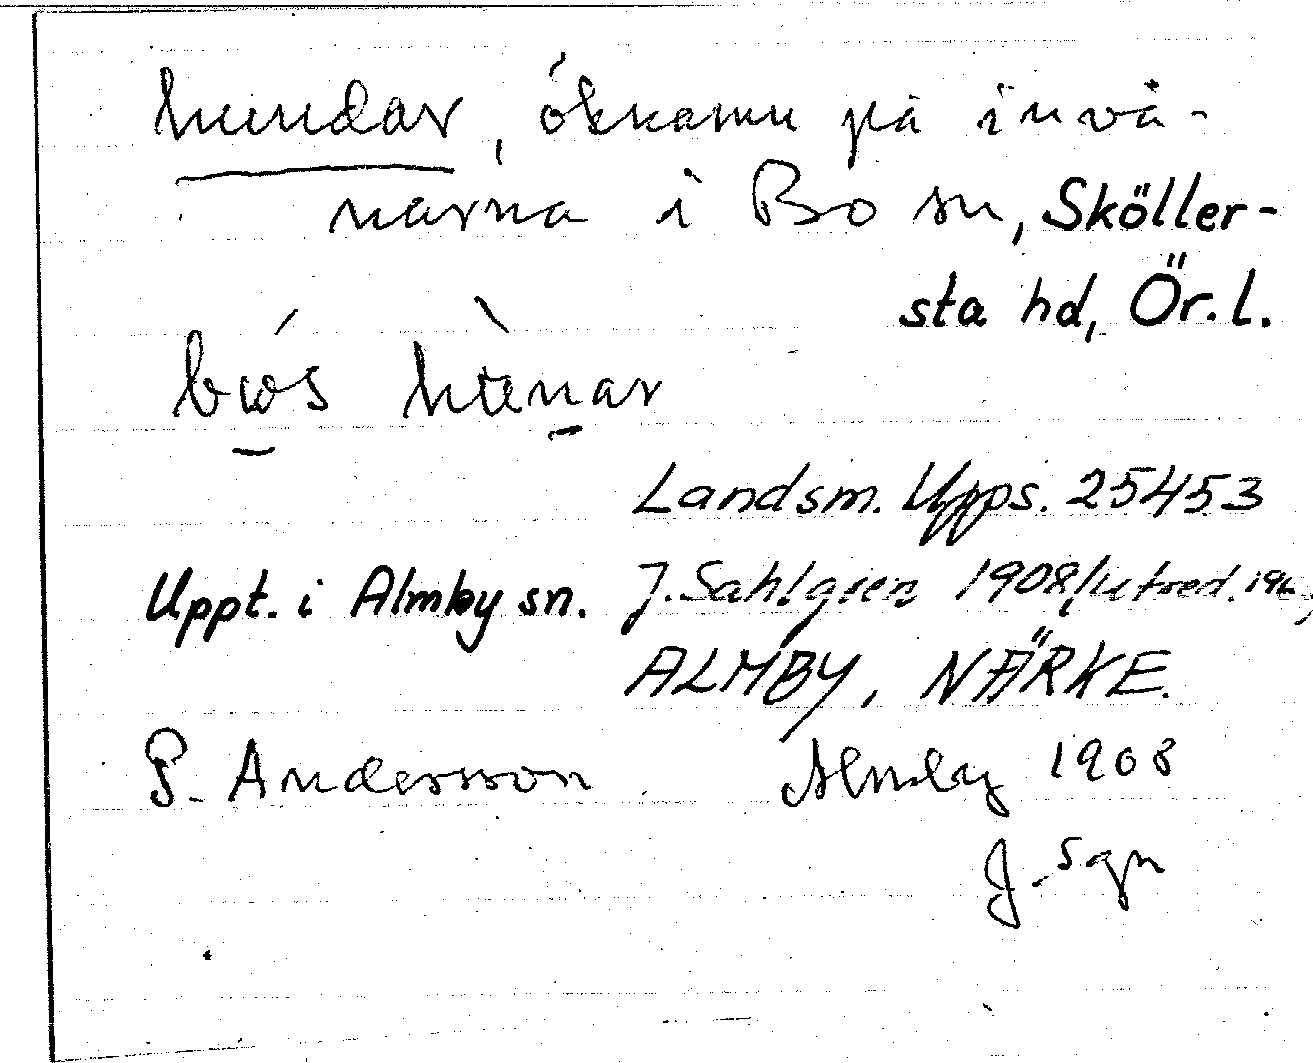 hundar, öknamn på invå-
narna i Bo sn, Sköller-
sta hd, Ör.l.
Landsm. Upps. 25453
Uppt. i Almby sn. J. Sahlgren 1908/utred.
ALMBY, NÄRKE.
P. Andersson Almby 1908
J. Sgn